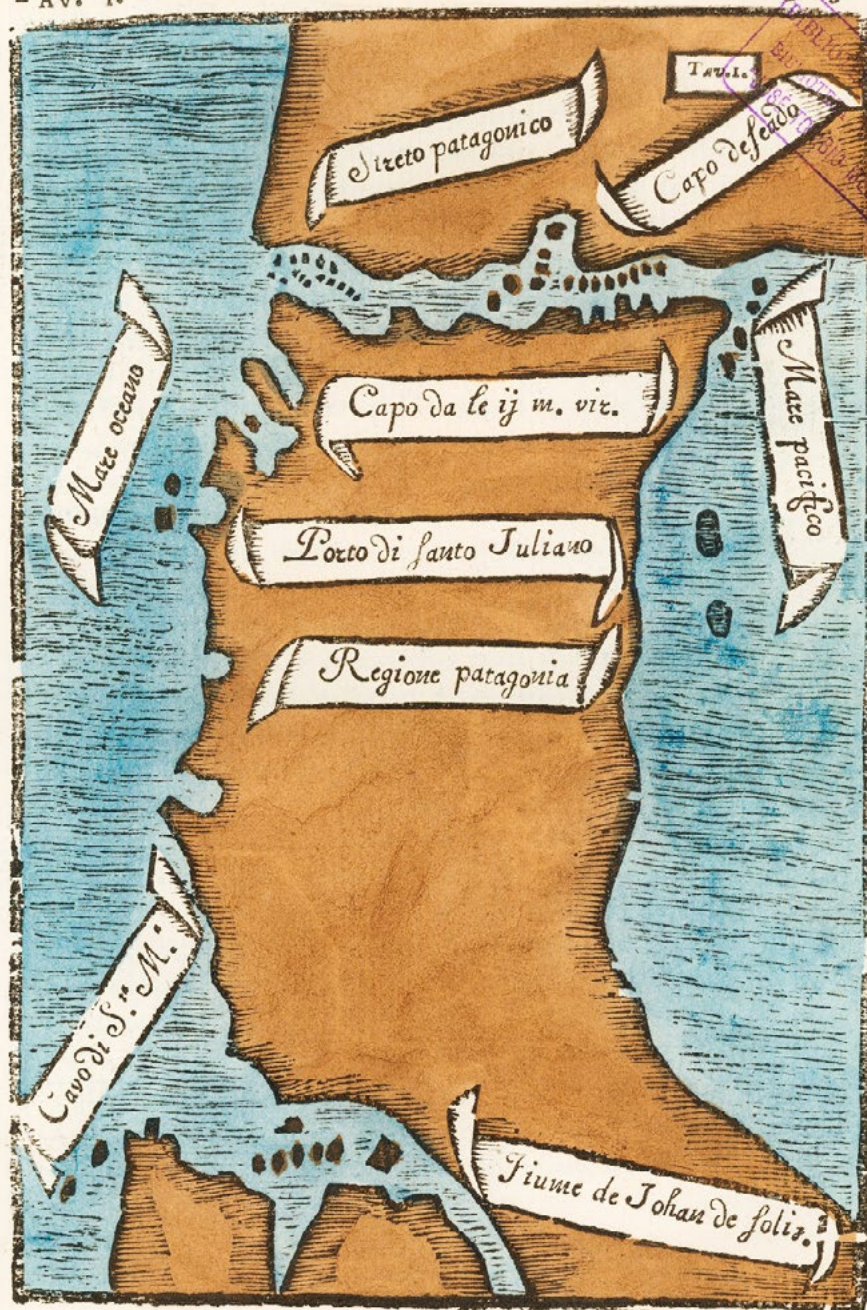 Tav. 1.
Streto patagonico
Capo deseado
Mare oceano
Capo da le ij m. vir.
Mare pacifico
Porto di santo Juliano
Regione patagonia
Cavo di S.ta M.a
Fiume de Johan de solis.